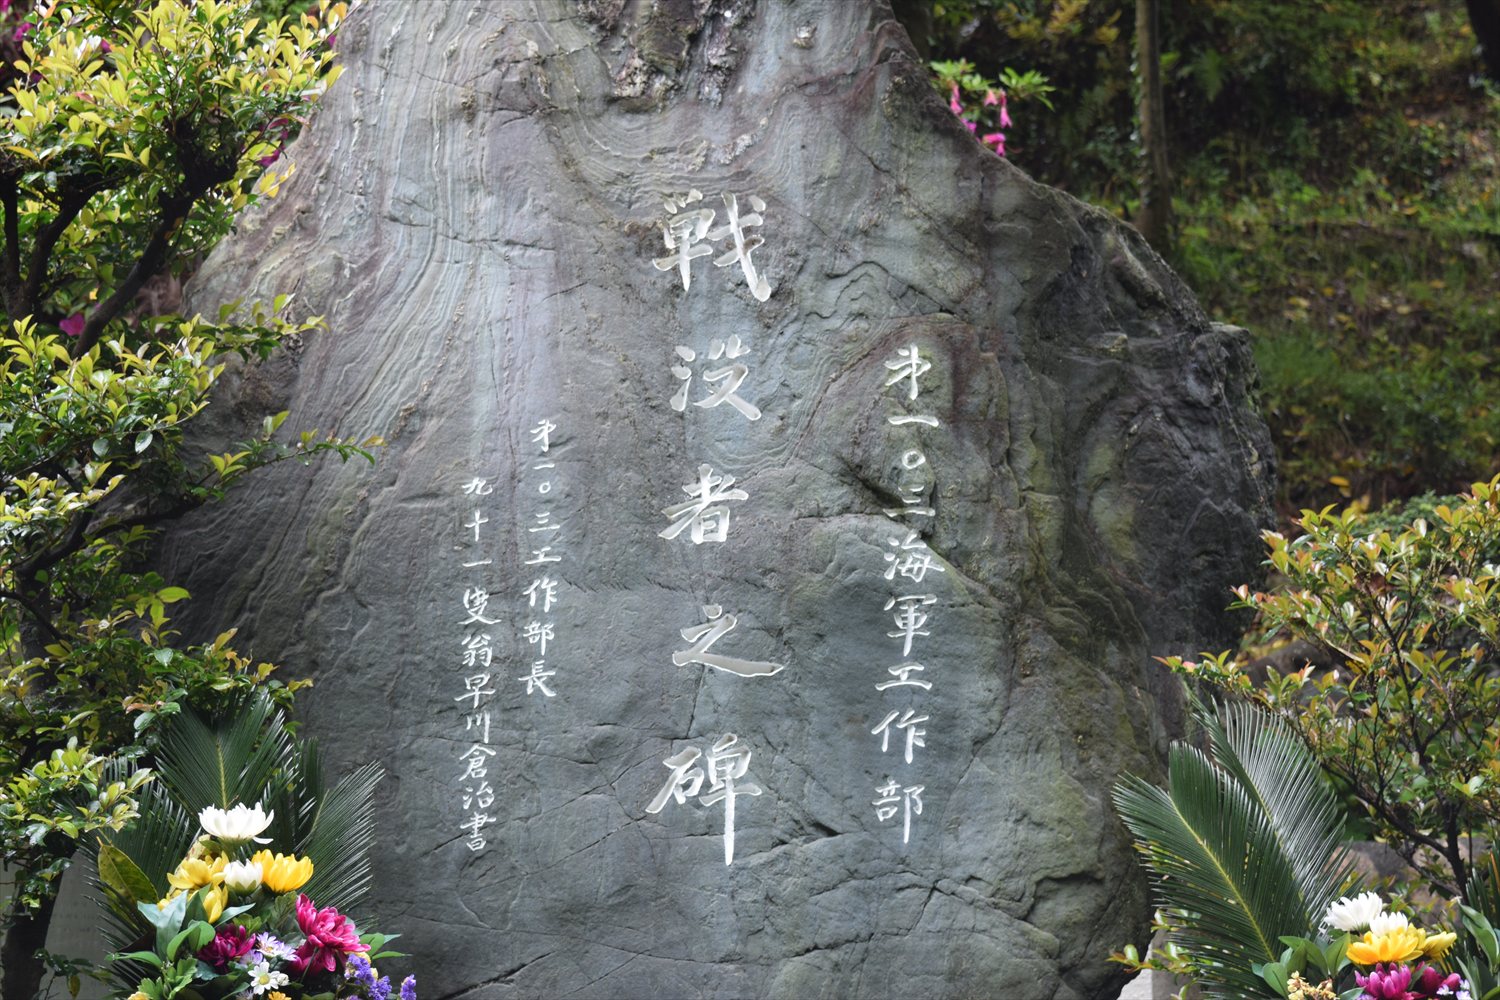 第一〇三海軍工作部
戦没者之碑
第一〇三工作部長
九十一叟翁早川倉治書